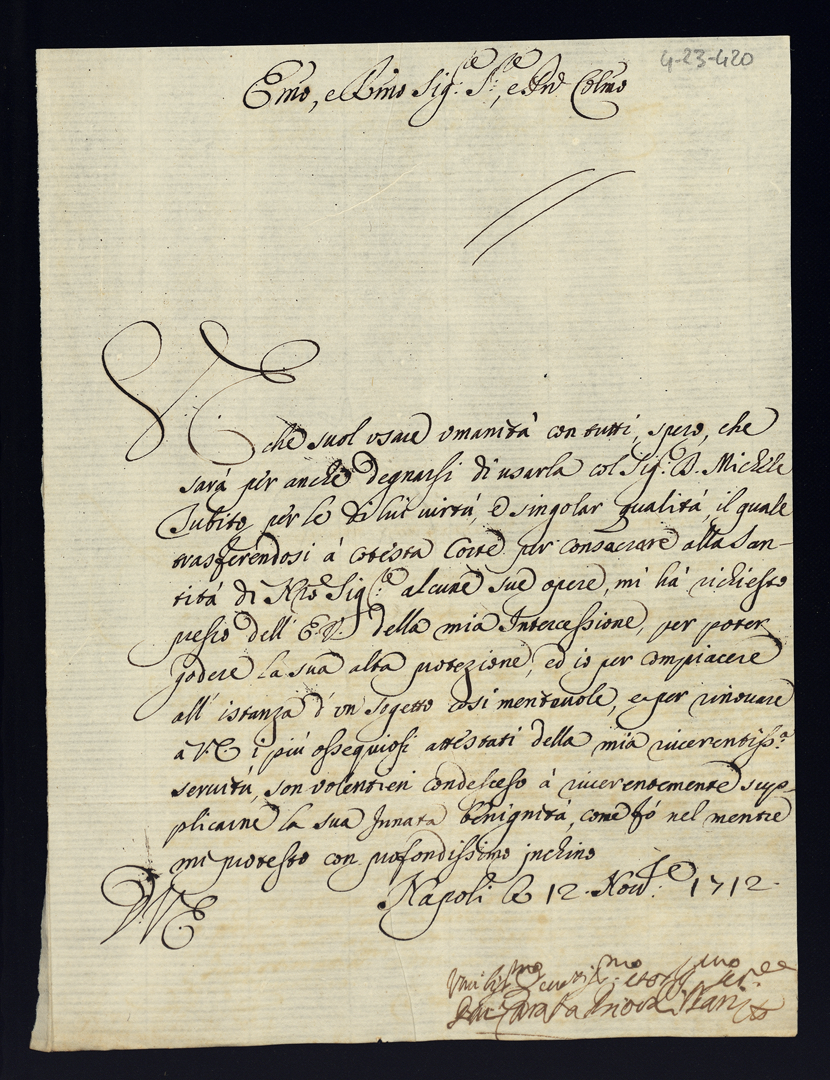 4-23-420
Emo, e Rmo Sig.re S.re, e Pnẽ Colmo
V.E. che suol usare umanità con tutti, spero, che
sarà per anche degnarsi di usarla col Sig.r D. Michele
Subito, per le di lui virtù, e singolar qualità, il quale
trasferendosi à cotesta Corte per consacrare alla San-
tità di Nro Sig.re alcune sue opere, mi hà richiesto
presso dell' E.V. della mia Intercessione, per poter
godere la sua alta protezione, ed io per compiacere
all' istanza d'un sogetto così meritevole, e per rinovare
à V.E. i più ossequiosi attestati della mia riverentiss.a
servitù, son volentieri condesceso à riverentemente sup-
plicarne la sua Innata benignità, come fò nel mentre
mi protesto con profondissimo inchino
Napoli le 12 Nov.re 1712
D.V.E.